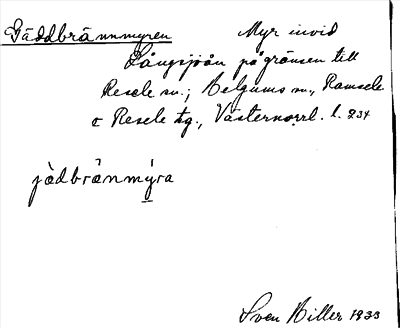 Gäddbrännmyren Myr invid
Långsjöån på gränsen till
Resele sn.; Helgums sn., Ramsele
o Resele tg., Västernorrl. l. 234
jädbränmýra
Sven Hiller 1933